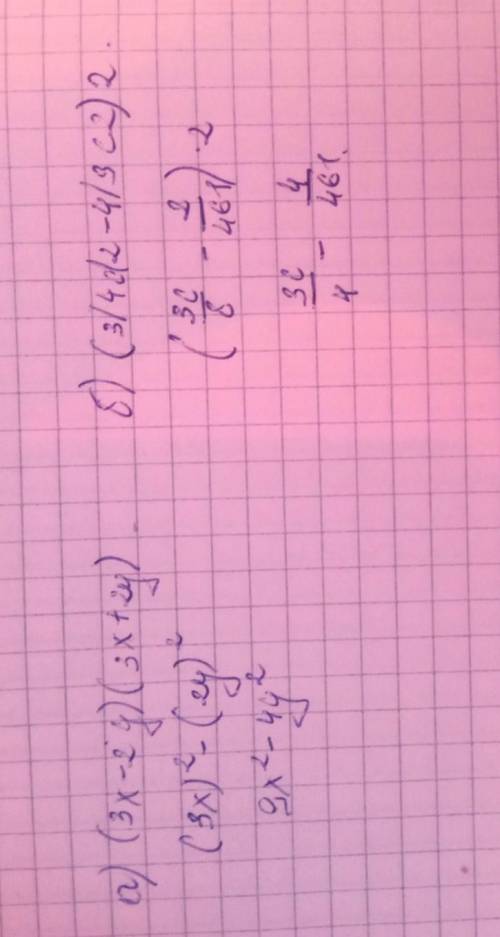 а) (3x-2y)(3x+2y)
(3x)²-(2y)²
9x²-4y²
б) (3/4c/2-4/3c2)2.
(3c/8 - 2/461)·2
3c/4 - 4/461.